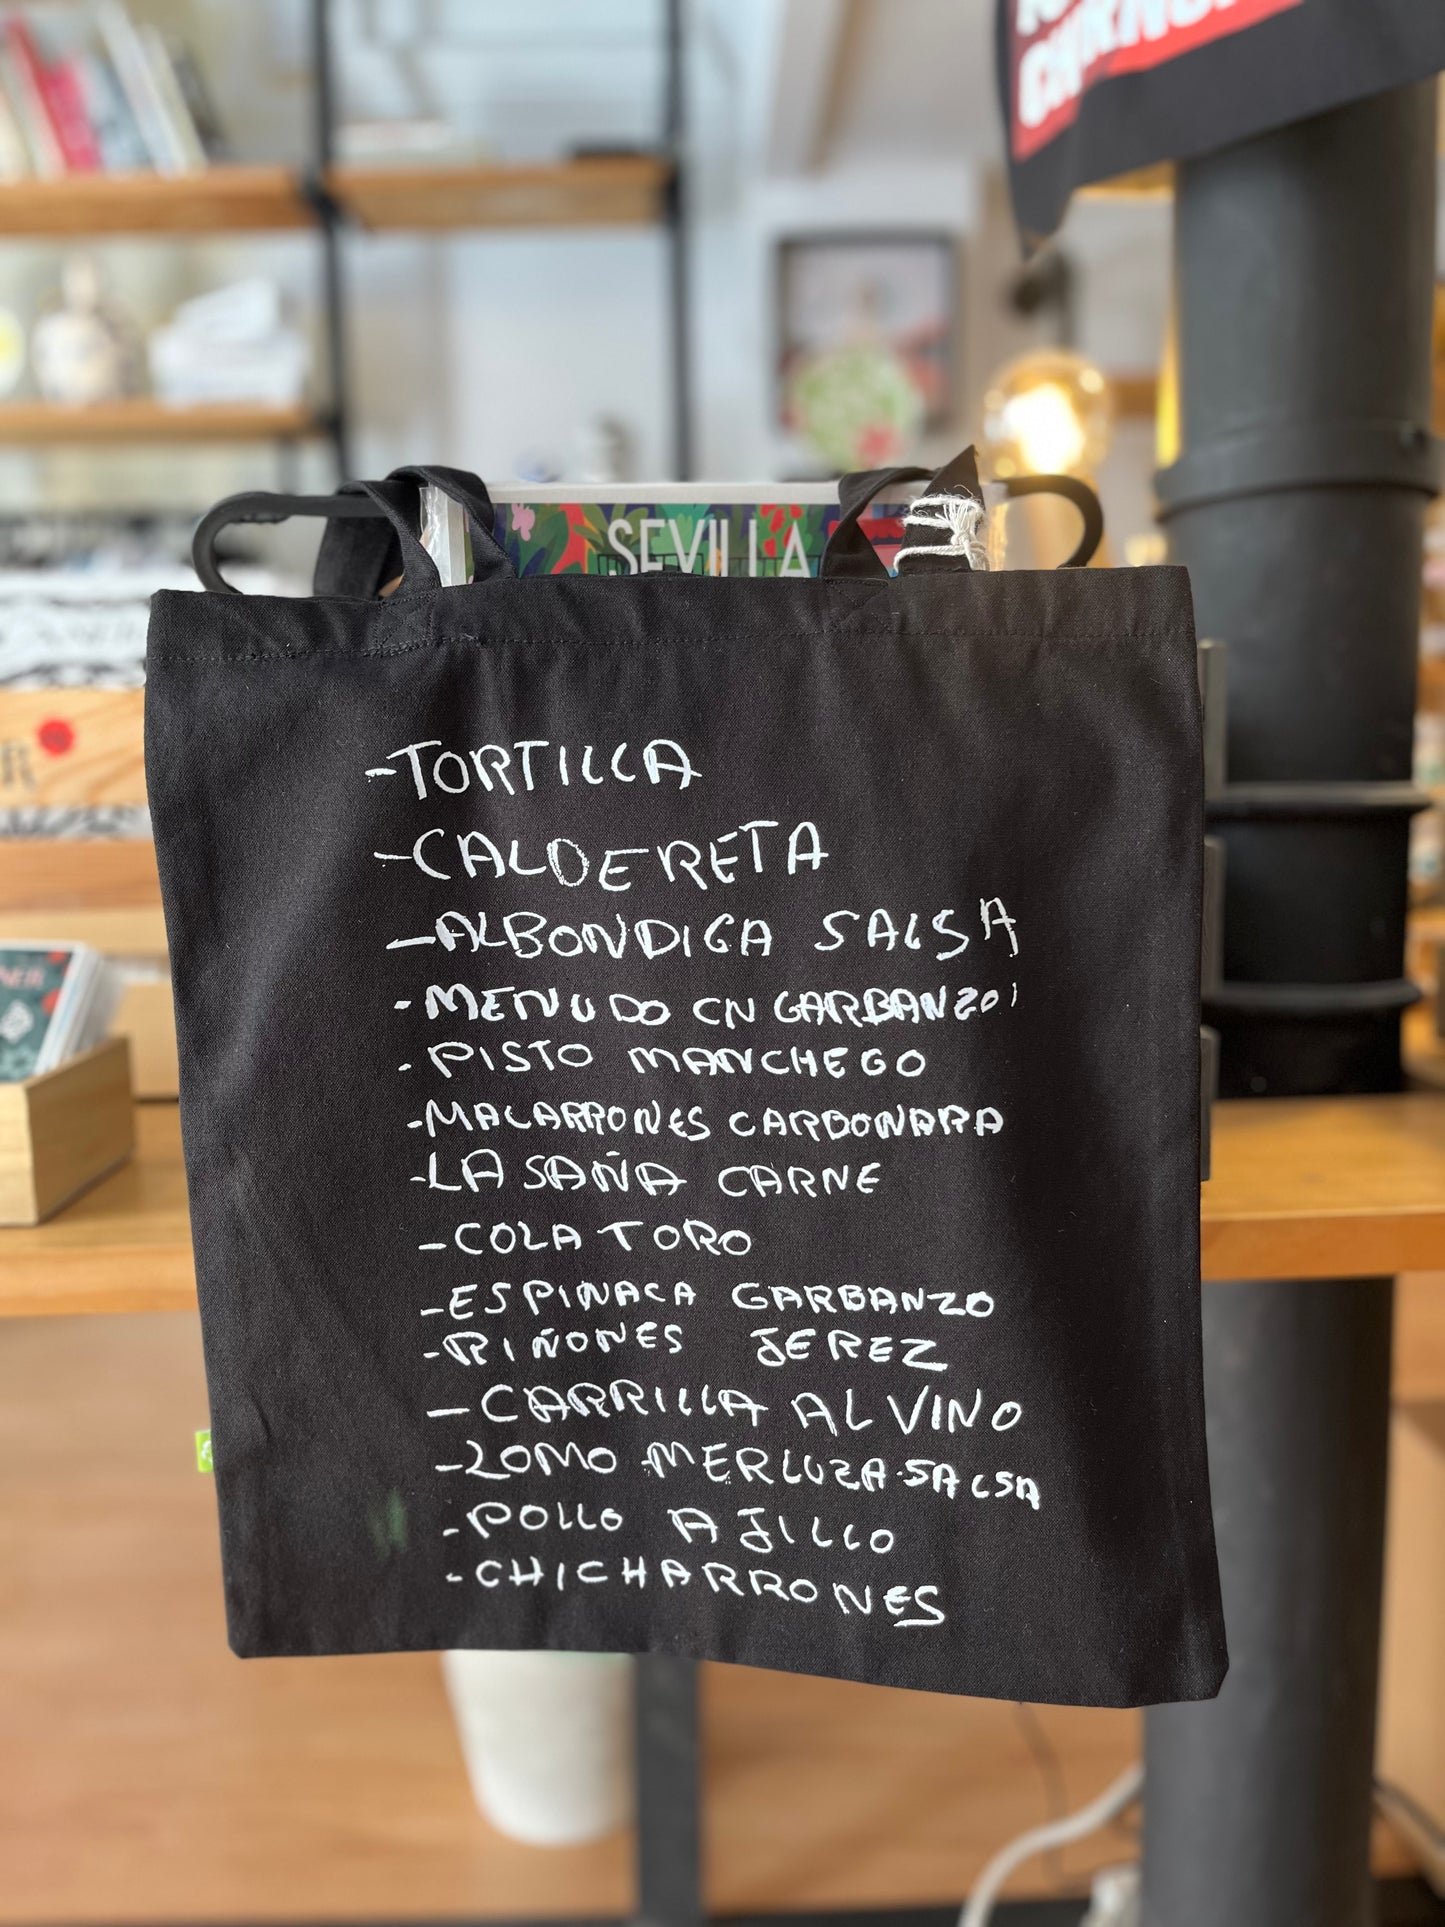 SEVILLA
-TORTILLA
-CALDERETA
-ALBONDIGA SALSA
-MENUDO CN GARBANZO
-PISTO MANCHEGO
-MACARRONES CARDONARA
-LA SAÑA CARNE
-COLA TORO
-ESPINACA GARBANZO
-RIÑONES JEREZ
-CARRILLA AL VINO
-LOMO MERLUZA-SALSA
-POLLO AJILLO
-CHICHARRONES